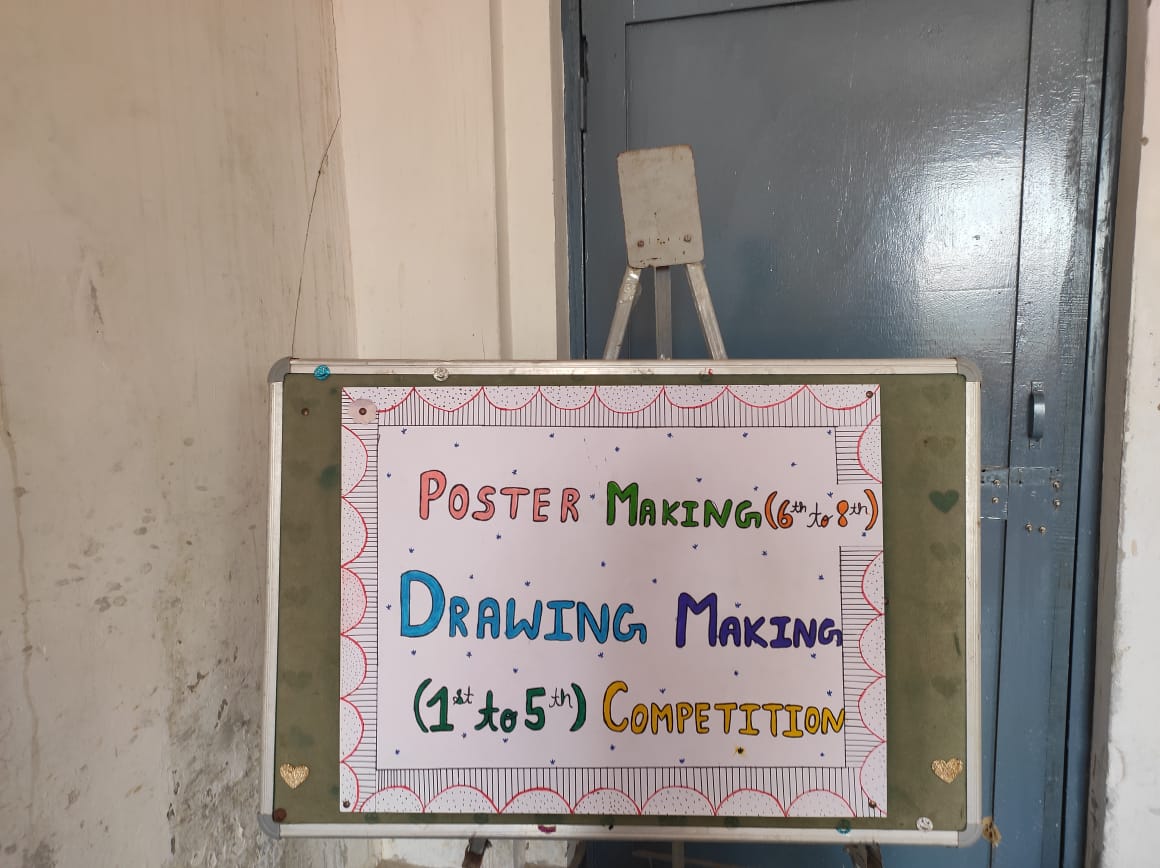 POSTER MAKING (6th to 8th)
DRAWING MAKING
(1st to 5th) COMPETITION